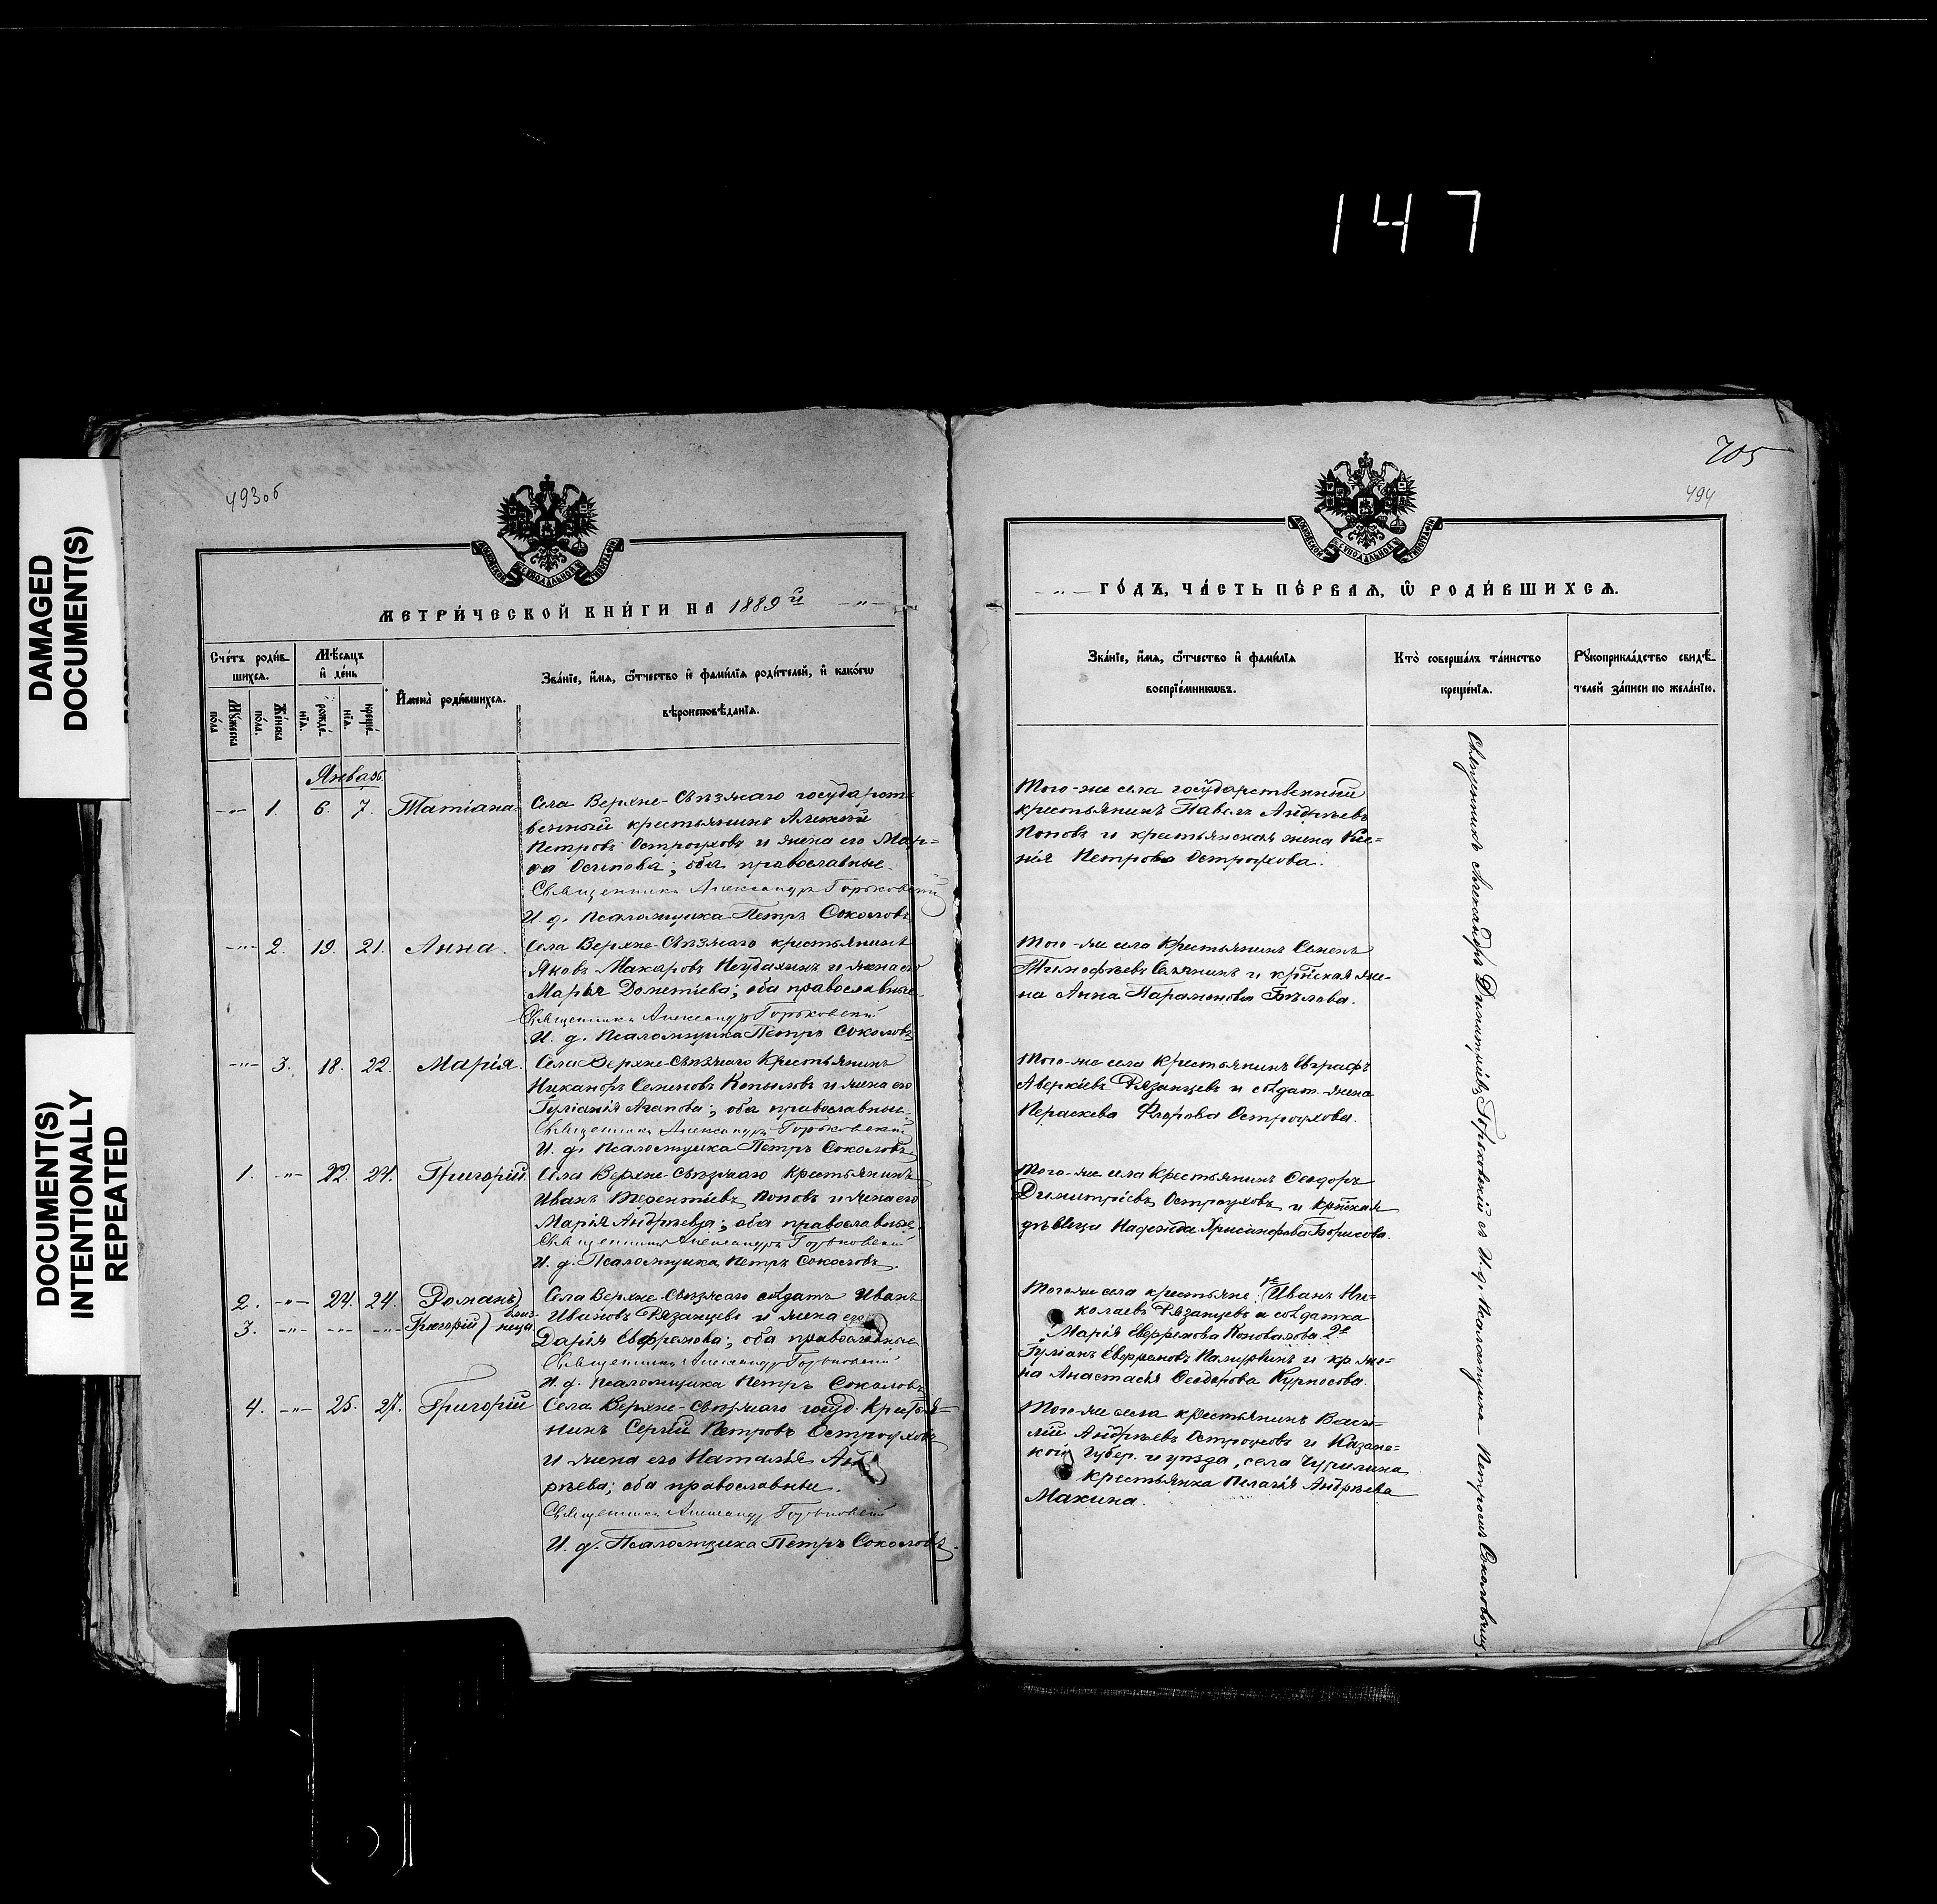 147
DAMAGED
DOCUMENT(S)
DOCUMENT(S)
INTENTIONALLY
REPEATED
493об
МЕТРИ́ЧЕСКОЙ КНИ́ГИ НА 1889й —„—
Сче́тъ роди́в-
шихся.
Мѣ́сяцъ
и҆ де́нь
Му́жеска
по́ла
Же́нска
по́ла.
рожде́-
нїя.
креще́-
нїя.
И҆мена̀ роди́вшихся.
Зва́нїе, и҆́мя, ѻ҆́тчество и҆ фами́лїя роди́телей, и҆ како́гѡ
вѣроисповѣ́данїя.
Январь.
-„- 1. 6. 7. Татіана. Села Верхне-Съѣзжаго государст-
венный крестьянинъ Алексѣй
Петровъ Остроуховъ и жена его Мар-
ѳа Осипова; оба православные.
Священникъ Александръ Горьковскій
И. д. Псаломщика Петръ Соколовъ
-„- 2. 19. 21. Анна. Села Верхне-Съѣзжаго крестьянинъ
Яковъ Макаровъ Неудахинъ и жена его
Марья Дометіева; оба православные.
Священникъ Александръ Горьковскій
И. д. Псаломщика Петръ Соколовъ
-„- 3. 18. 22. Марія. Села Верхне-Съѣзжаго Крестьянинъ
Никаноръ Семеновъ Копыловъ и жена его
Гуліанія Агапова; оба православные.
Священникъ Александръ Горьковскій
И. д. Псаломщика Петръ Соколовъ
1. -„- 22. 24. Григорій. Села Верхне-Съѣзжаго Крестьянинъ
Иванъ Терентіевъ Поповъ и жена его
Марія Андрѣева; оба православные.
Священникъ Александръ Горьковскій
И. д. Псаломщика Петръ Соколовъ.
2. -„- 24. 24. Романъ) Села Верхне-Съѣзжаго солдатъ Иванъ
3. -„- -„- -„- Григорій) близ-
неца Ивановъ Рязанцевъ и жена его
Дарія Евфремова; оба православные
Священникъ Александръ Горьковскій
И. д. Псаломщика Петръ Соколовъ
4. -„- 25. 27. Григорій Села Верхне-Съѣзжаго госуд. Крестья-
нинъ Сергѣй Петровъ Остроуховъ
и жена его Наталья Анд-
рѣева; оба православные.
Священникъ Александръ Горьковскій
И. д. Псаломщика Петръ Соколовъ.
705
494
—„— ГО́ДЪ, ЧА́СТЬ ПЕ́РВАЯ, Ѡ҆ РОДИ́ВШИХСЯ.
Зва́нїе, и҆́мя, ѻ҆́тчество и҆ фами́лїя
воспрїе́мникѡвъ.
Кто̀ соверша́лъ та́инство
креще́нїя.
Рꙋкоприкла́дство свидѣ́-
телей за́писи по жела́нїю.
Того-же села государственный
крестьянинъ Павелъ Андрѣевъ
Поповъ и крестьянская жена Ксе-
нія Петрова Остроухова.
Того-же села Крестьянинъ Семенъ
Тимофѣевъ и кр̃нская же-
на Анна Парамонова Бѣлова.
Того-же села Крестьянинъ Евграфъ
Аверкіевъ Рязанцевъ и солдат. жена
Параскева Флорова Остроухова.
Того-же села Крестьянинъ Ѳеодоръ
Димитріевъ Остроуховъ и кр̃нская
дѣвица Надежда Хрисанфова Борисова.
Того-же села крестьяне: 1е Иванъ Ни-
колаевъ Рязанцевъ и солдатка
Марія Евфремова Коновалова 2е
Гуліанъ Евфремовъ и кр. же-
на Анастасія Ѳеодорова Курносова.
Того-же села крестьянинъ Васи-
лій Андрѣевъ Остроуховъ и Казанс-
кой губер. и уѣзда, села Чурилина
крестьянка Пелагія Андрѣева
Макина.
Священникъ Александръ Димитріевъ Горьковскій съ И. д. Псаломщика Петромъ Соколовымъ